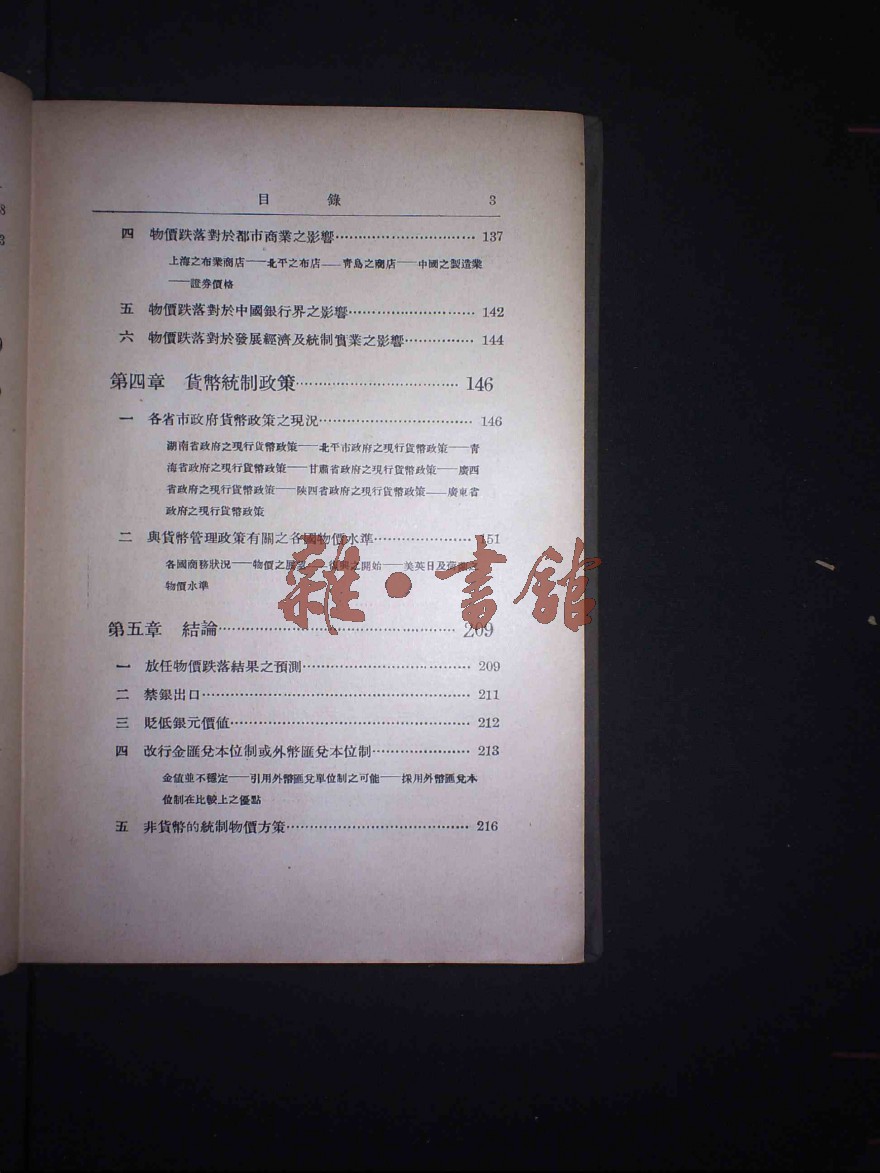 目錄 3
四 物價跌落對於都市商業之影響 137
上海之布業商店——北平之布店——青島之商店——中國之製造業
——證券價格
五 物價跌落對於中國銀行界之影響 142
六 物價跌落對於發展經濟及統制實業之影響 144
第四章 貨幣統制政策 146
一 各省市政府貨幣政策之現況 146
湖南省政府之現行貨幣政策——北平市政府之現行貨幣政策——青
海省政府之現行貨幣政策——甘肅省政府之現行貨幣政策——廣西
省政府之現行貨幣政策——陝西省政府之現行貨幣政策——廣東省
政府之現行貨幣政策
二 與貨幣管理政策有關之各國物價水準 151
各國商務狀況——物價之展望——復興之開始——美英日及
物價水準
雜·書館
第五章 結論 209
一 放任物價跌落結果之預測 209
二 禁銀出口 211
三 貶低銀元價值 212
四 改行金匯兌本位制或外幣匯兌本位制 213
金值並不穩定——引用外幣匯兌單位制之可能——採用外幣匯兌本
位制在比較上之優點
五 非貨幣的統制物價方策 216